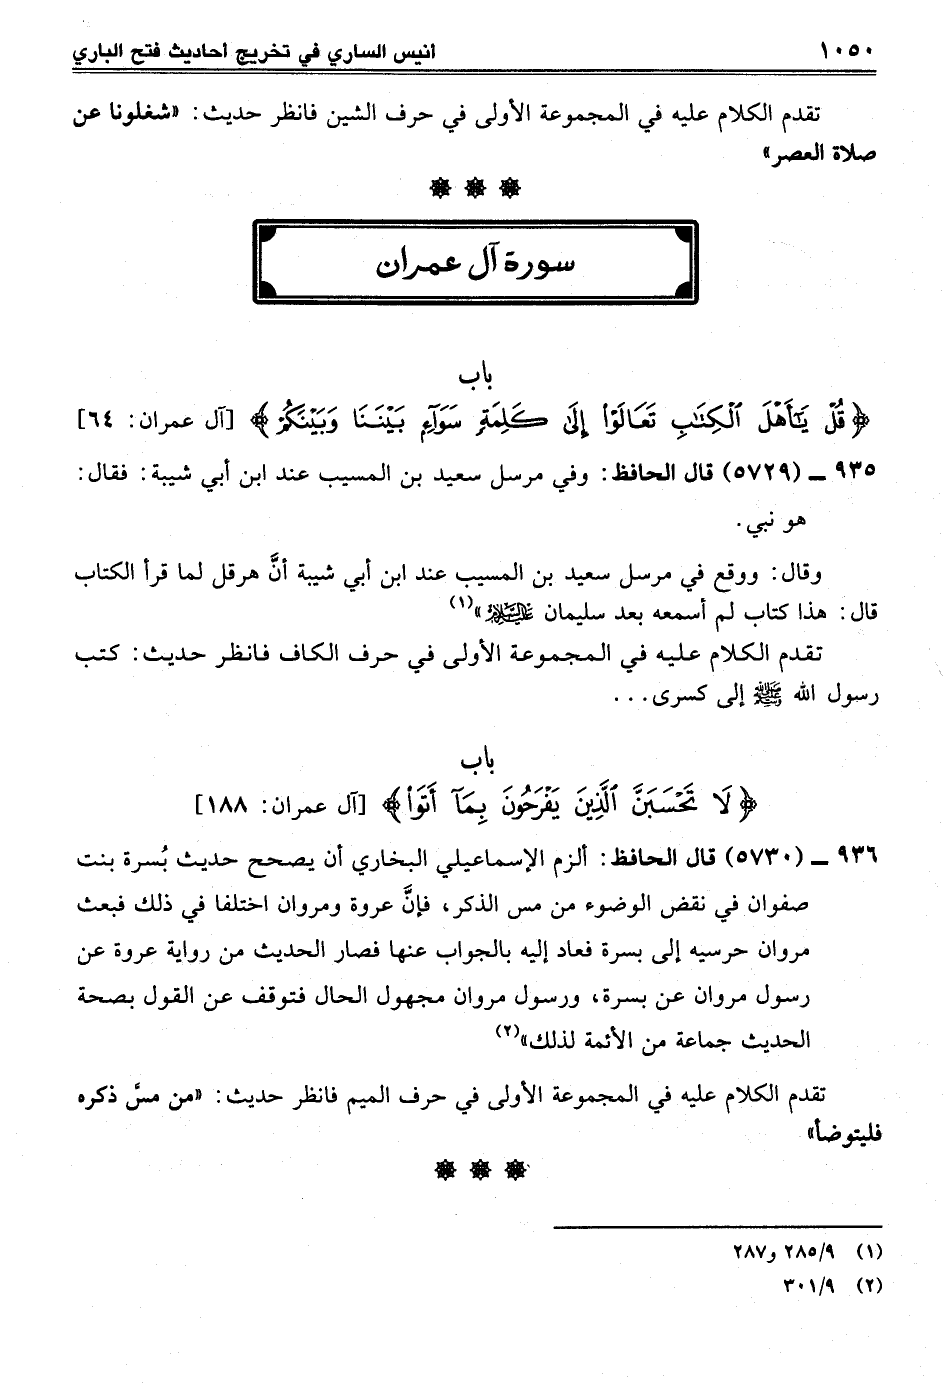 ١٠٥٠ أنيس الساري في تخريج أحاديث فتح الباري
تقدم الكلام عليه في المجموعة الأولى في حرف الشين فانظر حديث: «شغلونا عن
صلاة العصر»
سورة آل عمران
باب
﴿قُلْ يَٰٓأَهْلَ ٱلْكِتَٰبِ تَعَالَوْا۟ إِلَىٰ كَلِمَةٍ سَوَآءٍۭ بَيْنَنَا وَبَيْنَكُمْ﴾ [آل عمران: ٦٤]
٩٣٥ ـ (٥٧٢٩) قال الحافظ: وفي مرسل سعيد بن المسيب عند ابن أبي شيبة: فقال:
هو نبي.
وقال: ووقع في مرسل سعيد بن المسيب عند ابن أبي شيبة أنَّ هرقل لما قرأ الكتاب
قال: هذا كتاب لم أسمعه بعد سليمان عليه السلام»(١)
تقدم الكلام عليه في المجموعة الأولى في حرف الكاف فانظر حديث: كتب
رسول الله ﷺ إلى كسرى...
باب
﴿لَا تَحْسَبَنَّ ٱلَّذِينَ يَفْرَحُونَ بِمَآ أَتَوا۟﴾ [آل عمران: ١٨٨]
٩٣٦ ـ (٥٧٣٠) قال الحافظ: ألزم الإسماعيلي البخاري أن يصحح حديث بُسرة بنت
صفوان في نقض الوضوء من مس الذكر، فإنَّ عروة ومروان اختلفا في ذلك فبعث
مروان حرسيه إلى بسرة فعاد إليه بالجواب عنها فصار الحديث من رواية عروة عن
رسول مروان عن بسرة، ورسول مروان مجهول الحال فتوقف عن القول بصحة
الحديث جماعة من الأئمة لذلك»(٢)
تقدم الكلام عليه في المجموعة الأولى في حرف الميم فانظر حديث: «من مسَّ ذكره
فليتوضأ»
(١) ٢٨٥/٩ و٢٨٧
(٢) ٣٠١/٩